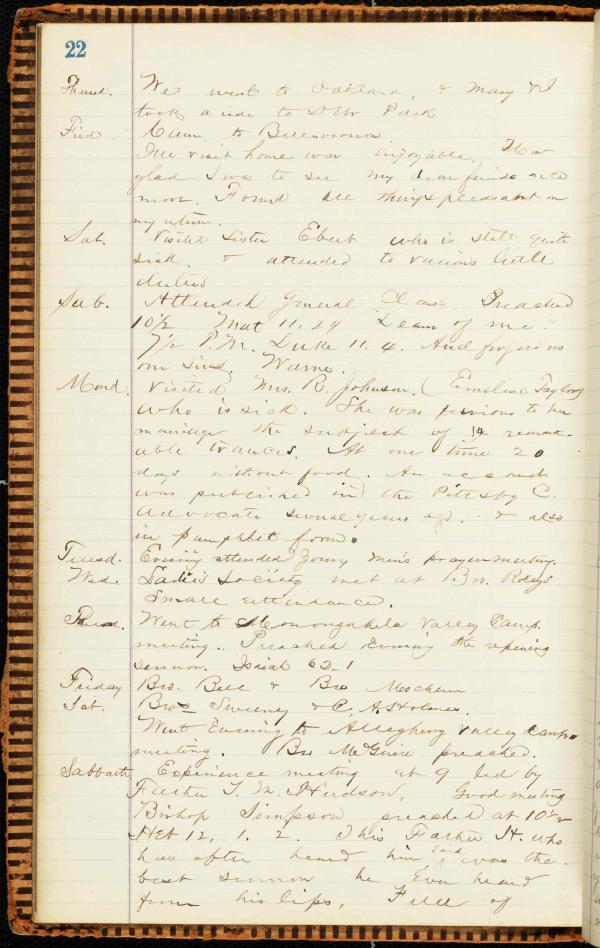 22
Thurs. We went to Oakland, & Mary & I
took a ride to Park
Frid Came to Bellevernon
The visit home was enjoyable. How
glad I was to see my dear friends once
more. Found all things pleasant on
my return.
Sat. Visited Sister Ebert who is still quite
sick. & attended to various little
duties
Sab. Attended General Class. Preached
10 1/2 Mat 11.29 Learn of me."
7 1/2 P.M. Luke 11.4. And forgive us
our sins. Warm.
Mond. Visited Mrs. R. Johnson. (Emeline Taylor)
who is sick. She was previous to her
marriage the subject of 14 remark-
able trances. At one time 20
days without food. An account
was published in the Pittsbg C.
Advocate several years ago. & also
in pamphlet form.
Tuesd. Evening attended young men's prayermeeting.
Wed. Ladies Society met at Bro. Roleys
Small attendance.
Thurs. Went to Monongahela Valley Camp.
meeting. Preached Evening the opening
sermon. Isaiah 62-1
Friday Bro. Bell & Bro Meachem
Sat. Bros Sweeney & C. A. Holmes.
Went Evening to Allegheny Valley Camp-
meeting. Bro McGuire preached.
Sabbath Experience meeting at 9 led by
Father T. M. Hudson, Good meeting
Bishop Simpson preached at 10 1/2
Heb 12, 1. 2. This Father H. who
has often heard him, said was the
best sermon he Ever heard
from his lips, Full of